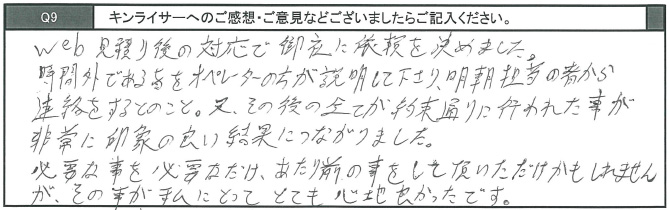 Q9 キンライサーへのご感想・ご意見などございましたらご記入ください。
web見積り後の対応で御社に依頼を決めました。
時間外である旨をオペレーターの方が説明して下さり、明朝担当の者から
連絡をするとのこと。又、その後の全てが約束通りに行われた事が
非常に印象の良い結果につながりました。
必要な事を必要なだけ、あたり前の事をして頂いただけかもしれません
が、その事が私にとってとても心地良かったです。